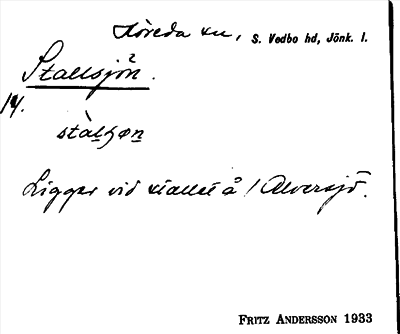 Höreda sn, S. Vedbo hd, Jönk. l.
Stallsjön.
14.
Ligger vid å / Alversjö.
FRITZ ANDERSSON 1933